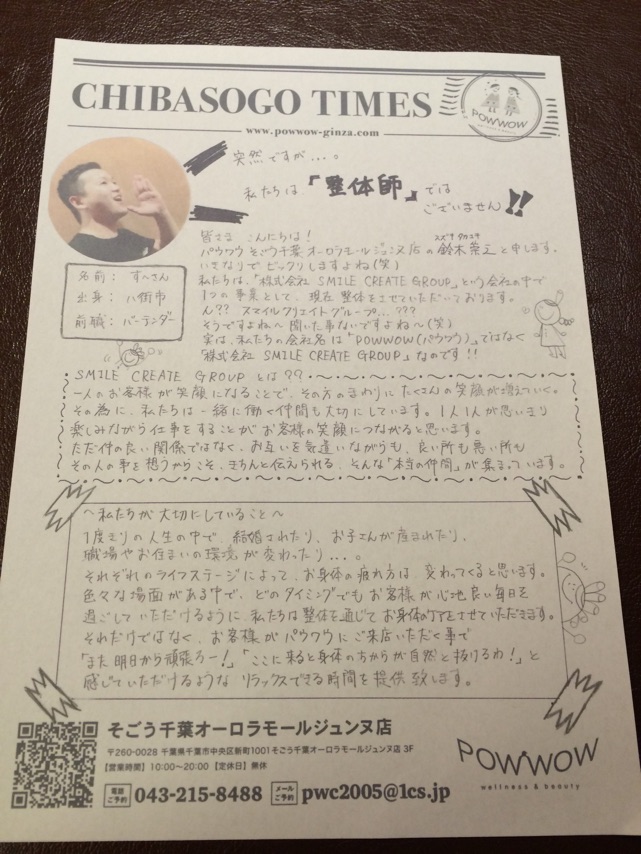 CHIBASOGO TIMES
www.powwow-ginza.com
POWWOW
突然ですが…。
私たちは「整体師」では
ございません!!
皆さま こんにちは!
スズキ タカユキ
パウワウ そごう千葉 オーロラモールジュンヌ店の 鈴木 と申します。
いきなりで ビックリしますよね(笑)
私たちは、「株式会社 SMILE CREATE GROUP」という会社の中で
1つの事業として、現在 整体をさせていただいております。
ん?? スマイルクリエイトグループ…???
そうですよね〜 聞いた事ないですよね〜(笑)
実は、私たちの会社名は「POWWOW(パウワウ)」ではなく
「株式会社 SMILE CREATE GROUP」なのです!!
名前: すーさん
出身: 八街市
前職: バーテンダー
SMILE CREATE GROUP とは??
一人のお客様が笑顔になることで、その方のまわりにたくさんの笑顔が増えていく。
その為に、私たちは一緒に働く仲間も大切にしています。1人1人が思いきり
楽しみながら仕事をすることがお客様の笑顔につながると思います。
ただ仲の良い関係ではなく、お互いを気遣いながらも、良い所も悪い所も
その人の事を想うからこそ、きちんと伝えられる、そんな「本当の仲間」が集まっています。
〜私たちが大切にしていること〜
1度きりの人生の中で、結婚されたり、お子さんが産まれたり、
職場やお住まいの環境が変わったり…。
それぞれのライフステージによって、お身体の疲れ方は 変わってくると思います。
色々な場面がある中で、どのタイミングでもお客様が心地良い毎日を
過ごしていただけるように、私たちは整体を通じてお身体のケアをさせていただきます。
それだけではなく、お客様がパウワウにご来店いただく事で
「また明日から頑張ろー!」「ここに来ると身体のちからが自然と抜けるわ!」と
感じていただけるような リラックスできる時間を提供致します。
そごう千葉オーロラモールジュンヌ店
〒260-0028 千葉県千葉市中央区新町1001そごう千葉オーロラモールジュンヌ店 3F
【営業時間】10:00〜20:00【定休日】無休
電話ご予約 043-215-8488 メールご予約 pwc2005@1cs.jp
POWWOW
wellness & beauty